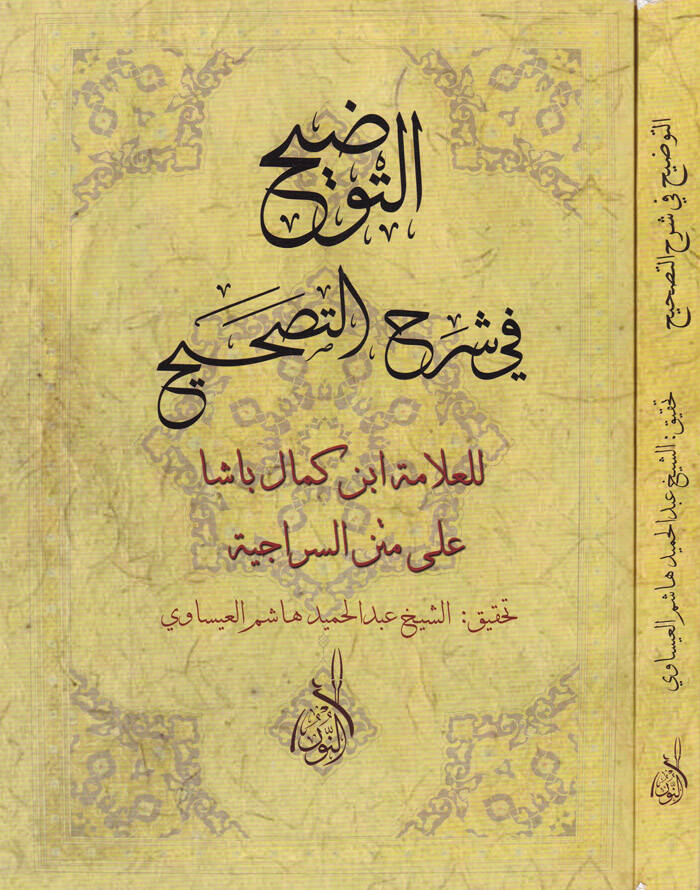 التوضيح
في شرح التصحيح
للعلامة ابن كمال باشا
على متن السراجية
تحقيق: الشيخ عبدالحميد هاشم العيساوي
النُّور
التوضيح في شرح التصحيح
تحقيق: الشيخ عبدالحميد هاشم العيساوي
النُّور